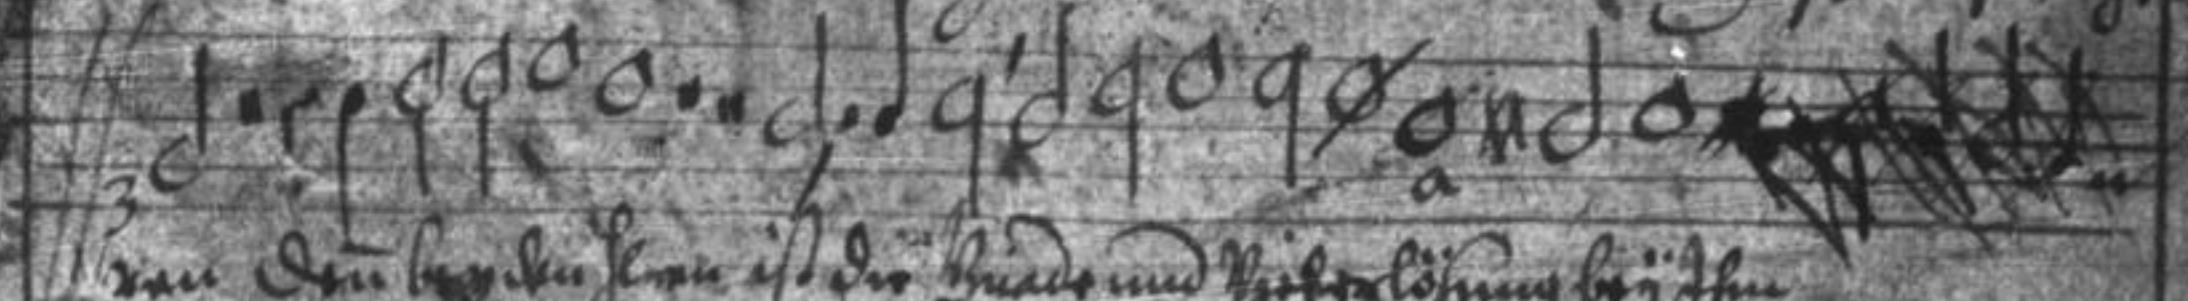 3
a
ren Denn bey dem Herrn ist die Gnade und Viel erlösung beÿ Ihm